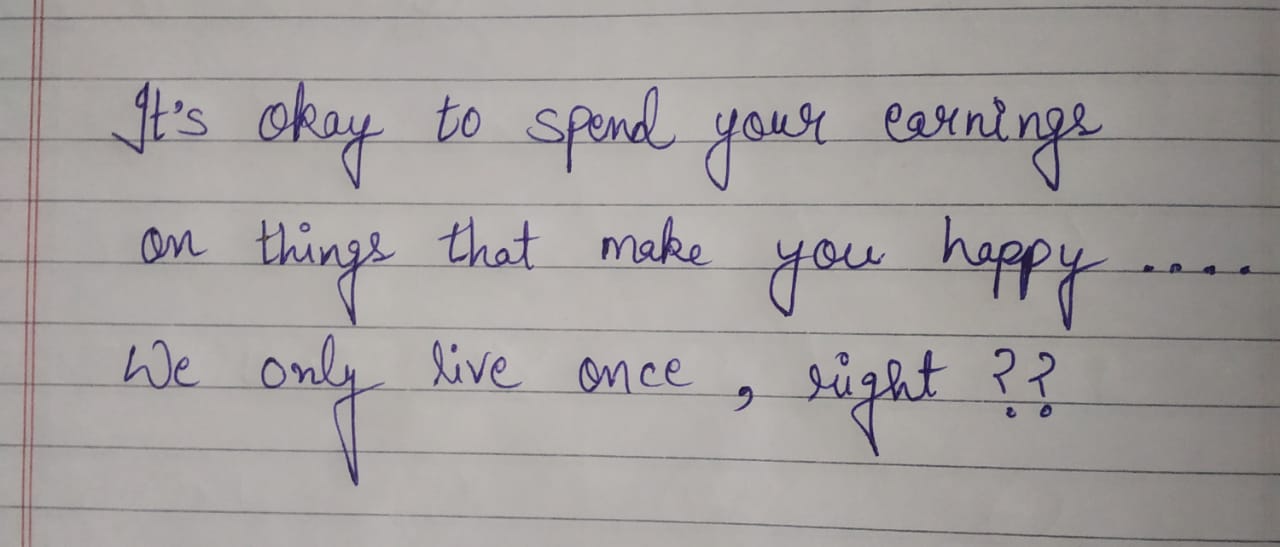 It's okay to spend your earnings
on things that make you happy ....
We only live once, right ??